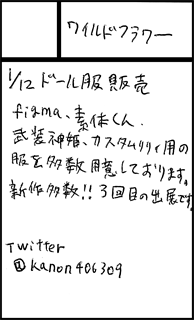 ワイルドフラワー
1/12 ドール服販売
figma、素体くん、
武装神姫、カスタムリリィ用の
服を多数用意しております。
新作多数!! 3回目の出展です
Twitter
@kanon406309